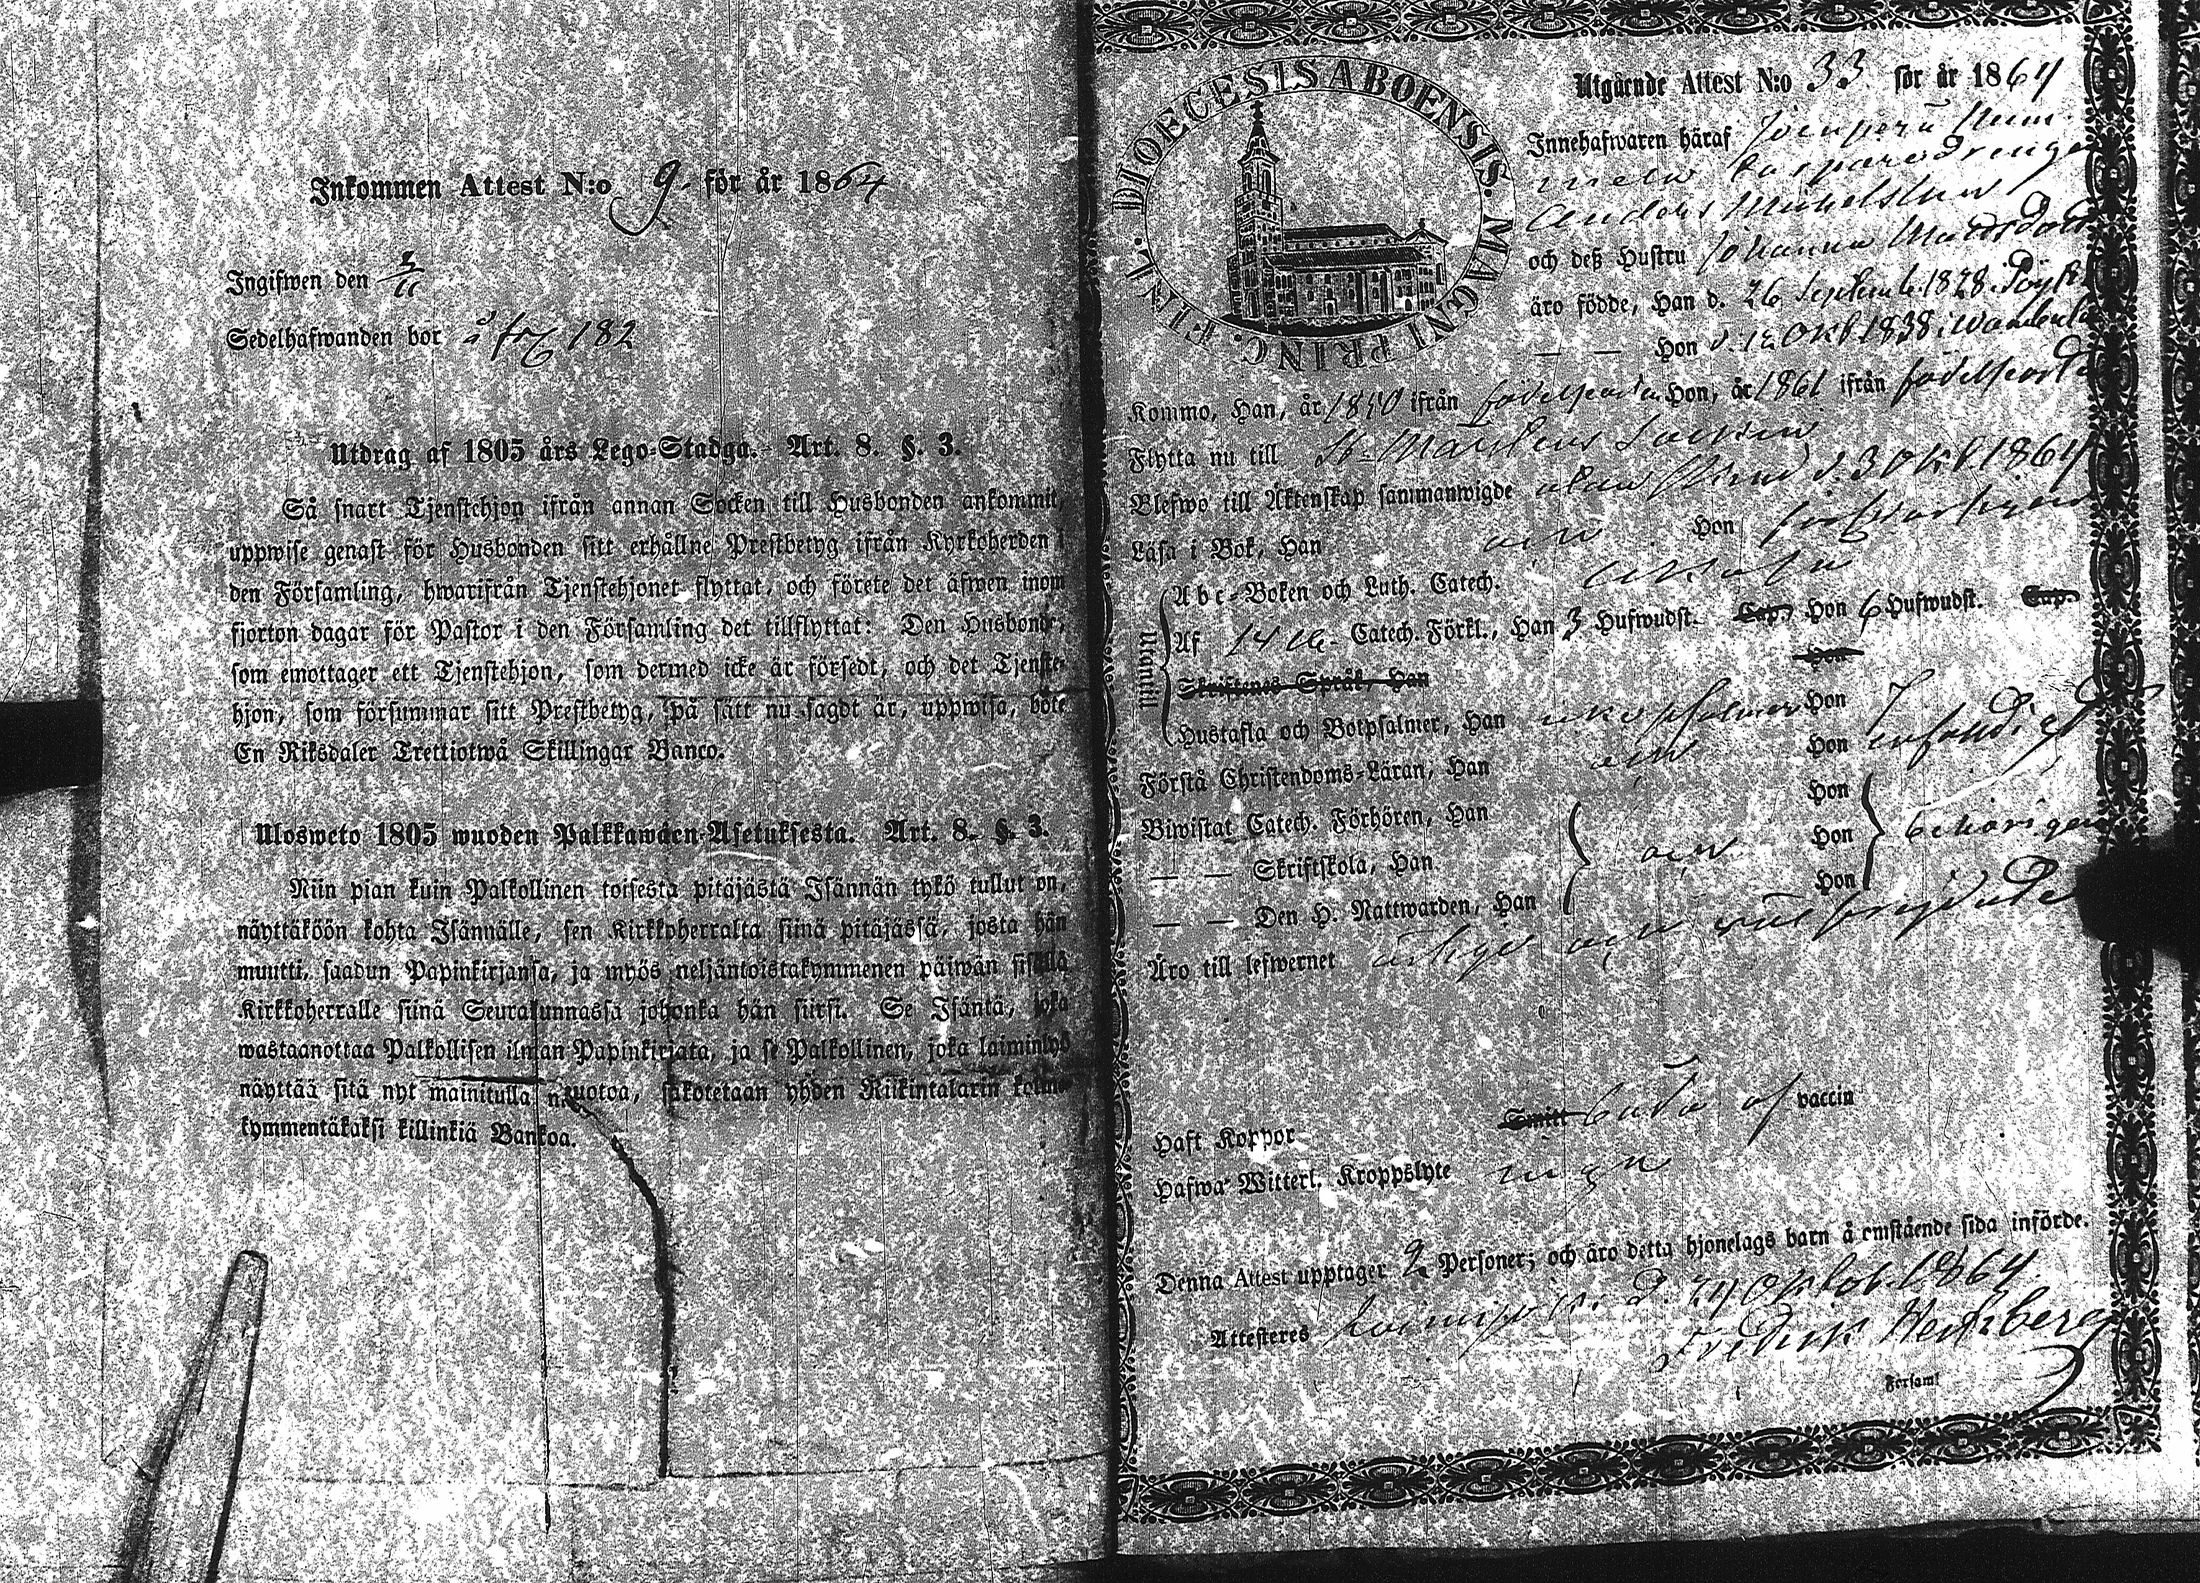 Inkommen Attest N:o 9. för år 1864
Ingifwen den 3/11
Sedelhafwanden bor å frg 182
Utdrag af 1805 års Lego-Stadga. Art. 8. §. 3.
Så snart Tjenstehjon ifrån annan Socken till Husbonden ankommit,
uppwise genast för Husbonden sitt erhållne Prestbetyg ifrån Kyrkoherden i
den Församling, hwarifrån Tjenstehjonet flyttat, och förete det äfwen inom
fjorton dagar för Pastor i den Församling det tillflyttat: Den Husbonde,
som emottager ett Tjenstehjon, som dermed icke är försedt, och det Tjenste-
hjon, som försummar sitt Prestbetyg, på sätt nu sagdt är, uppwisa, böte
En Riksdaler Trettiotwå Skillingar Banco.
Ulosweto 1805 wuoden Palkkawäen-Asetuksesta. Art. 8. §. 3.
Niin pian kuin Palkollinen toisesta pitäjästä Isännän tykö tullut on,
näyttäköön kohta Isännälle, sen Kirkkoherralta siinä pitäjässä, josta hän
muutti, saadun Papinkirjansa, ja myös neljäntoistakymmenen päiwän sisällä
Kirkkoherralle siinä Seurakunnassa johonka hän siirsi. Se Isäntä, joka
wastaanottaa Palkollisen ilman Papinkirjata, ja se Palkollinen, joka laiminlyö
näyttää sitä nyt mainitulla muotoa, sakotetaan yhden Riikintalarin kolme-
kymmentäkaksi killinkiä Bankoa.
DIOECESIS ABOENSIS. MAGNI PRINC. FINL.
Utgående Attest N:o 33 för år 1864
Innehafwaren häraf
Anders Mickelsson
och deß Hustru Johanna Mattsdotr
äro födde, Han d. 26 Septemb. 1828
— — Hon d. 12 Okt. 1838 i
Kommo, Han, år 1850 ifrån födelseorten Hon, år 1861 ifrån födelseorten
Flytta nu till St. Mårtens Socken
Blefwo till Äktenskap sammanwigde d. 3 Okt 1864
Läsa i Bok, Han och Hon försvarligen
Utantill
Abc-Boken och Luth. Catech.
Af Catech. Förkl., Han 3 Hufwudst. Cap. Hon 6 Hufwudst. Cap.
Skriftenes Språk, Han Hon
Hustafla och Botpsalmer, Han Hon
Förstå Christendoms-Läran, Han och Hon
Biwistat Catech. Förhören, Han Hon
— — Skriftskola, Han och Hon behörigen
— — Den H. Nattwarden, Han Hon
Äro till lefwernet ärlige och wälfrejdade
Haft Koppor Smitt båda af vaccin
Hafwa Witterl. Kroppslyte ingen
Denna Attest upptager 2 Personer; och äro detta hjonelags barn å omstående sida införde.
Attesteres Loimijoki d. 24 Oktob. 1864.
Fredrik
Församl